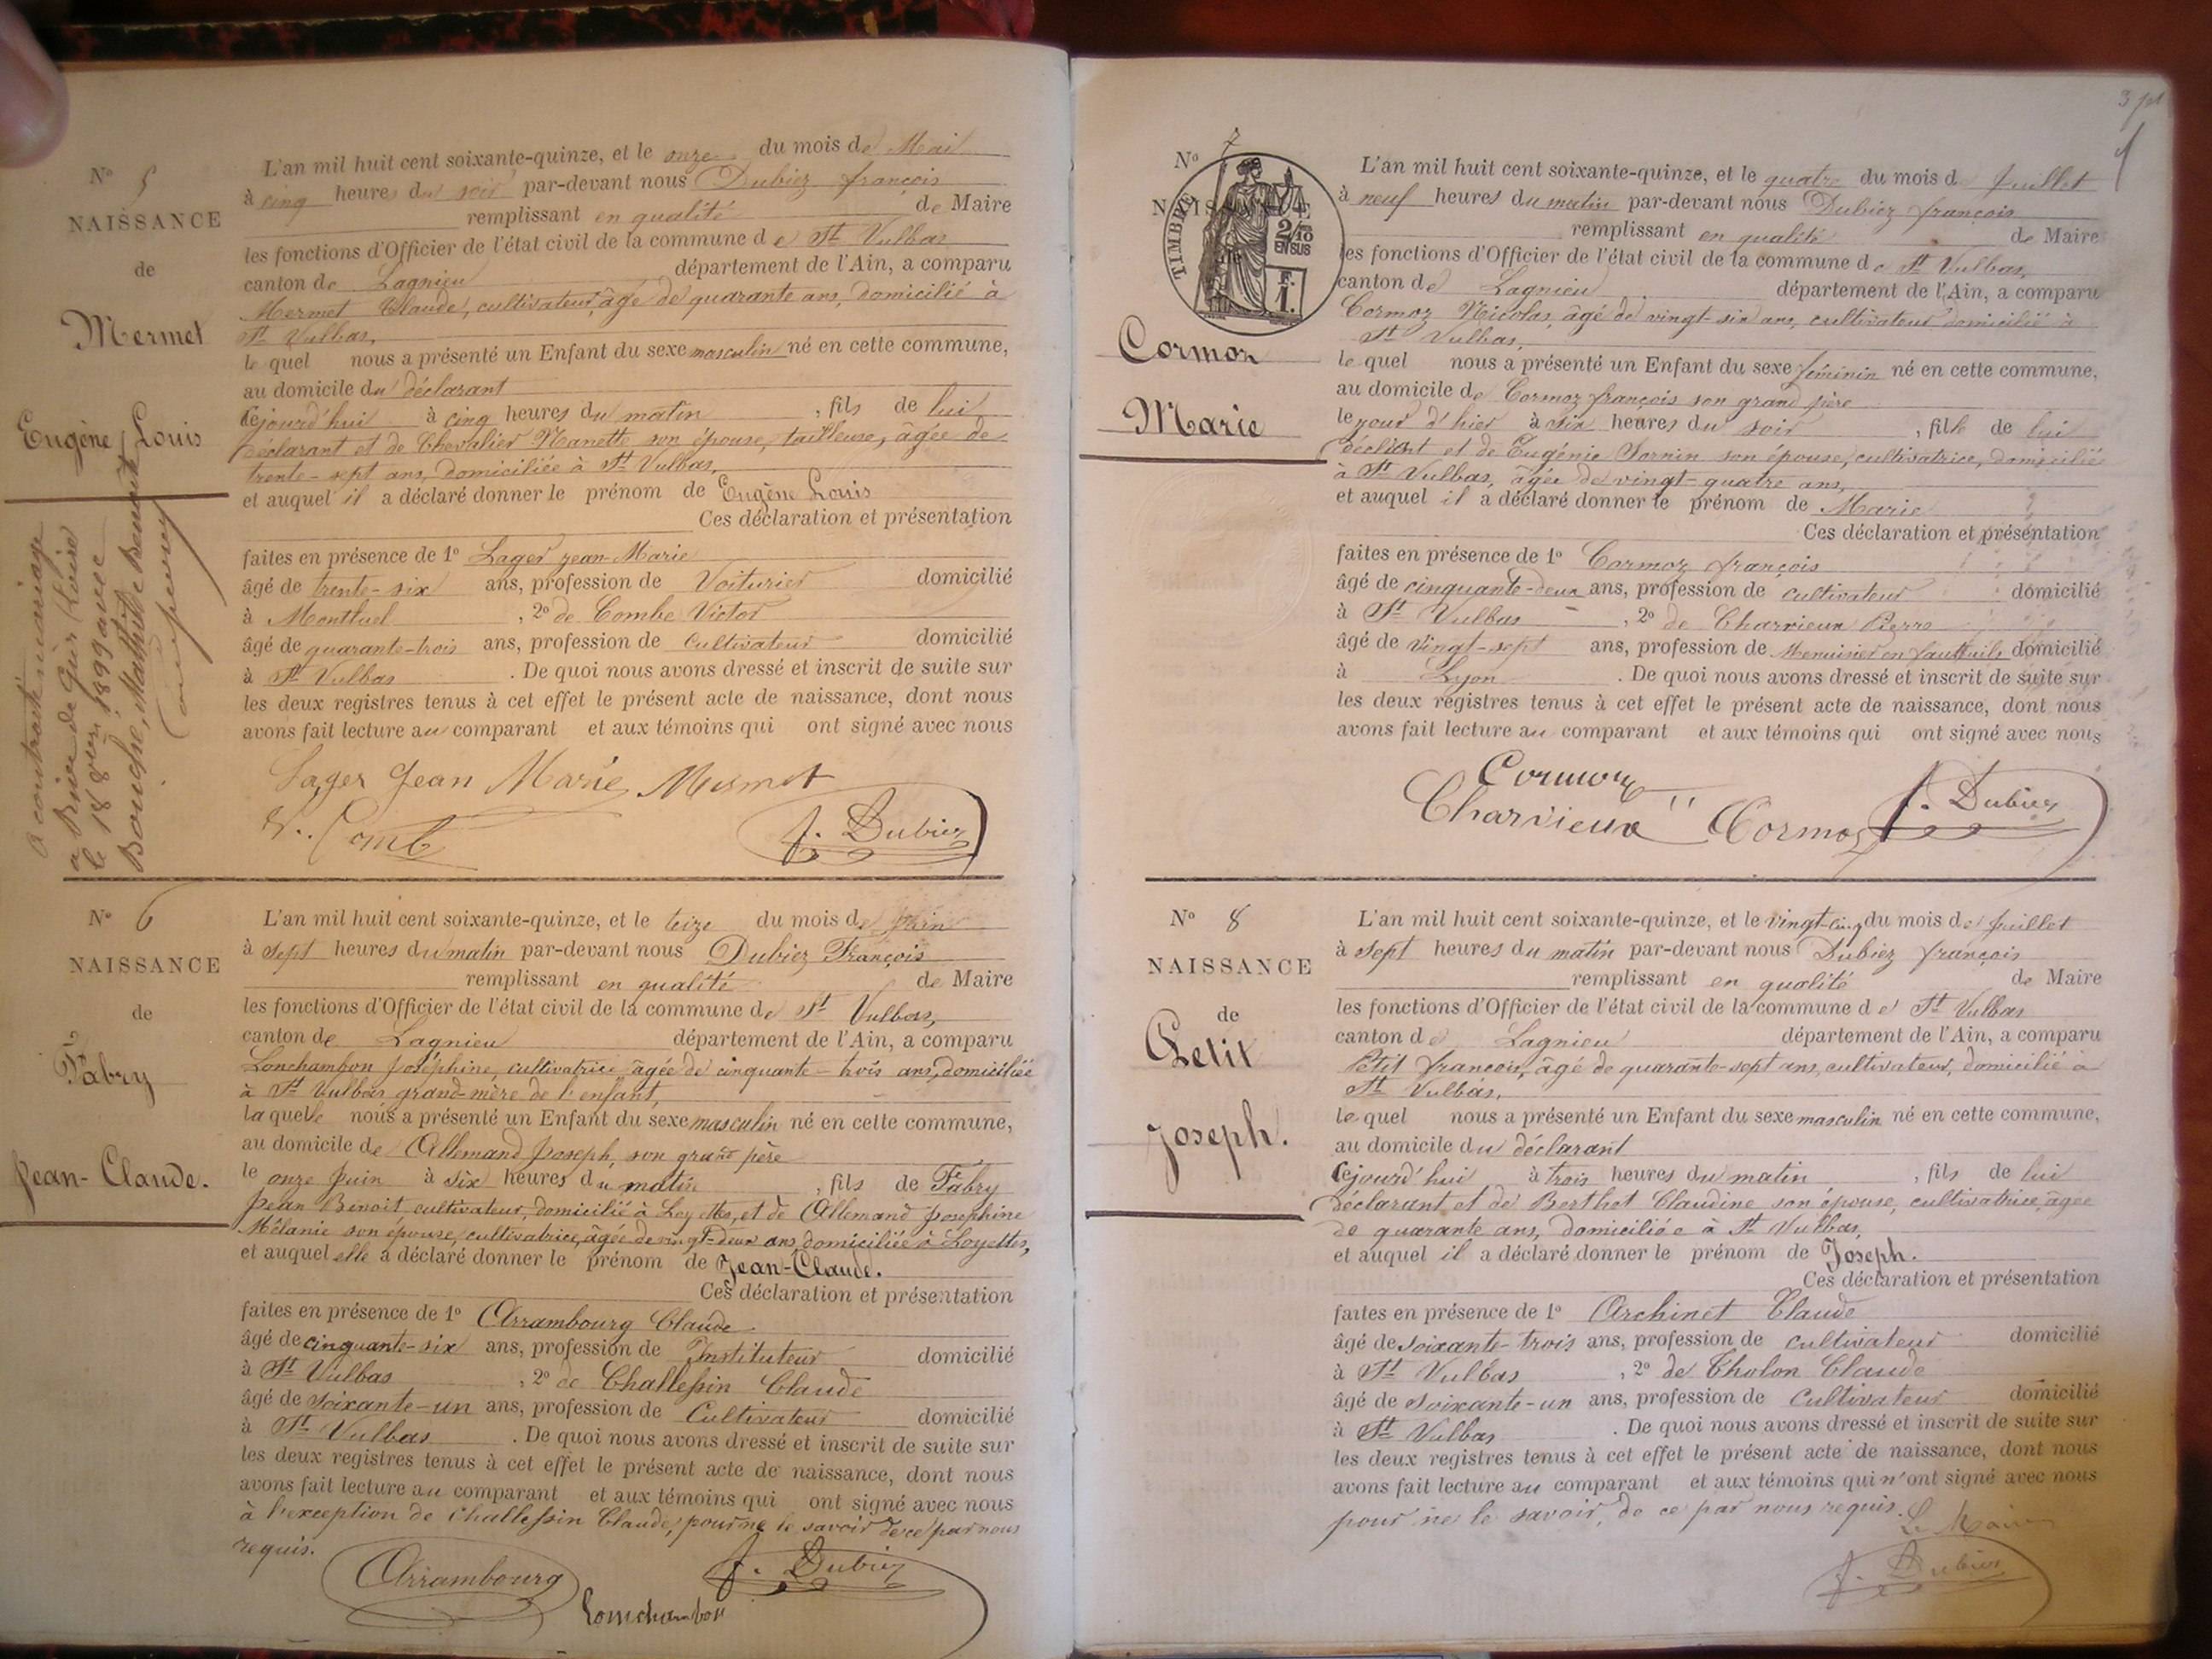 N° 5
NAISSANCE
de
Mermet
Eugène Louis
A contracté mariage
le 18 8bre 1899 avec
L'an mil huit cent soixante-quinze, et le onze du mois de Mai
à cinq heures du soir par-devant nous Dubiez françois
remplissant en qualité de Maire
les fonctions d'Officier de l'état civil de la commune de St Vulbas
canton de Lagnieu département de l'Ain, a comparu
Mermet Claude, cultivateur, âgé de quarante ans, domicilié à
St Vulbas,
le quel nous a présenté un Enfant du sexe masculin né en cette commune,
au domicile du déclarant
cejourd'hui à cinq heures du matin, fils de lui
déclarant et de Chevalier Nanette son épouse, tailleuse, âgée de
trente-sept ans, domiciliée à St Vulbas,
et auquel il a déclaré donner le prénom de Eugène Louis
Ces déclaration et présentation
faites en présence de 1° Lager jean-Marie
âgé de trente-six ans, profession de Voiturier domicilié
à Montluel, 2° de Combe Victor
âgé de quarante-trois ans, profession de Cultivateur domicilié
à St Vulbas. De quoi nous avons dressé et inscrit de suite sur
les deux registres tenus à cet effet le présent acte de naissance, dont nous
avons fait lecture au comparant et aux témoins qui ont signé avec nous
Lager Jean Marie Mermet
V. Comb f. Dubiez
N° 6
NAISSANCE
de
Fabry
Jean-Claude.
L'an mil huit cent soixante-quinze, et le treize du mois de juin
à sept heures du matin par-devant nous Dubiez François
remplissant en qualité de Maire
les fonctions d'Officier de l'état civil de la commune de St Vulbas,
canton de Lagnieu département de l'Ain, a comparu
Lonchambon Joséphine, cultivatrice, âgée de cinquante-trois ans, domiciliée
à St Vulbas grand-mère de l'enfant,
la quelle nous a présenté un Enfant du sexe masculin né en cette commune,
au domicile de Allemand Joseph, son grand père
le onze Juin à six heures du matin, fils de Fabry
Jean Benoit cultivateur, domicilié à Loyettes, et de Allemand Joséphine
Mélanie son épouse, cultivatrice, âgée de vingt-deux ans domiciliée à Loyettes,
et auquel elle a déclaré donner le prénom de Jean-Claude.
Ces déclaration et présentation
faites en présence de 1° Arrambourg Claude
âgé de cinquante-six ans, profession de Instituteur domicilié
à St Vulbas, 2° de Challessin Claude
âgé de soixante-un ans, profession de Cultivateur domicilié
à St Vulbas. De quoi nous avons dressé et inscrit de suite sur
les deux registres tenus à cet effet le présent acte de naissance, dont nous
avons fait lecture au comparant et aux témoins qui ont signé avec nous
à l'exception de Challessin Claude, pour ne le savoir de ce par nous
requis.
Arrambourg f. Dubiez
Lonchambon
N° 7
NAISSANCE
TIMBRE
2/10
EN SUS
F.
1.
Cormoz
Marie
L'an mil huit cent soixante-quinze, et le quatre du mois de Juillet
à neuf heures du matin par-devant nous Dubiez françois
remplissant en qualité de Maire
les fonctions d'Officier de l'état civil de la commune de St Vulbas,
canton de Lagnieu département de l'Ain, a comparu
Cormoz Nicolas, âgé de vingt-six ans, cultivateur domicilié à
St Vulbas,
le quel nous a présenté un Enfant du sexe féminin né en cette commune,
au domicile de Cormoz françois son grand père
le jour d'hier à six heures du soir, fille de lui
déclarant et de Eugénie Sornin son épouse, cultivatrice, domicilié
à St Vulbas, âgée de vingt-quatre ans,
et auquel il a déclaré donner le prénom de Marie
Ces déclaration et présentation
faites en présence de 1° Cormoz françois
âgé de cinquante-deux ans, profession de cultivateur domicilié
à St Vulbas, 2° de Charvieux Pierre
âgé de vingt-sept ans, profession de Menuisier en fauteuils domicilié
à Lyon. De quoi nous avons dressé et inscrit de suite sur
les deux registres tenus à cet effet le présent acte de naissance, dont nous
avons fait lecture au comparant et aux témoins qui ont signé avec nous
Cormoz
Charvieux Cormoz f. Dubiez
N° 8
NAISSANCE
de
Petit
Joseph.
L'an mil huit cent soixante-quinze, et le vingt-cinq du mois de juillet
à sept heures du matin par-devant nous Dubiez françois
remplissant en qualité de Maire
les fonctions d'Officier de l'état civil de la commune de St Vulbas
canton de Lagnieu département de l'Ain, a comparu
Petit francois, âgé de quarante-sept ans, cultivateur, domicilié à
St Vulbas,
le quel nous a présenté un Enfant du sexe masculin né en cette commune,
au domicile du déclarant
cejourd'hui à trois heures du matin, fils de lui
déclarant et de Berthet Claudine son épouse, cultivatrice, âgée
de quarante ans, domiciliée à St Vulbas,
et auquel il a déclaré donner le prénom de Joseph.
Ces déclaration et présentation
faites en présence de 1° Archinet Claude
âgé de soixante-trois ans, profession de cultivateur domicilié
à St Vulbas, 2° de Tholon Claude
âgé de soixante-un ans, profession de Cultivateur domicilié
à St Vulbas. De quoi nous avons dressé et inscrit de suite sur
les deux registres tenus à cet effet le présent acte de naissance, dont nous
avons fait lecture au comparant et aux témoins qui n'ont signé avec nous
pour ne le savoir, de ce par nous requis.
Le Maire
f. Dubiez